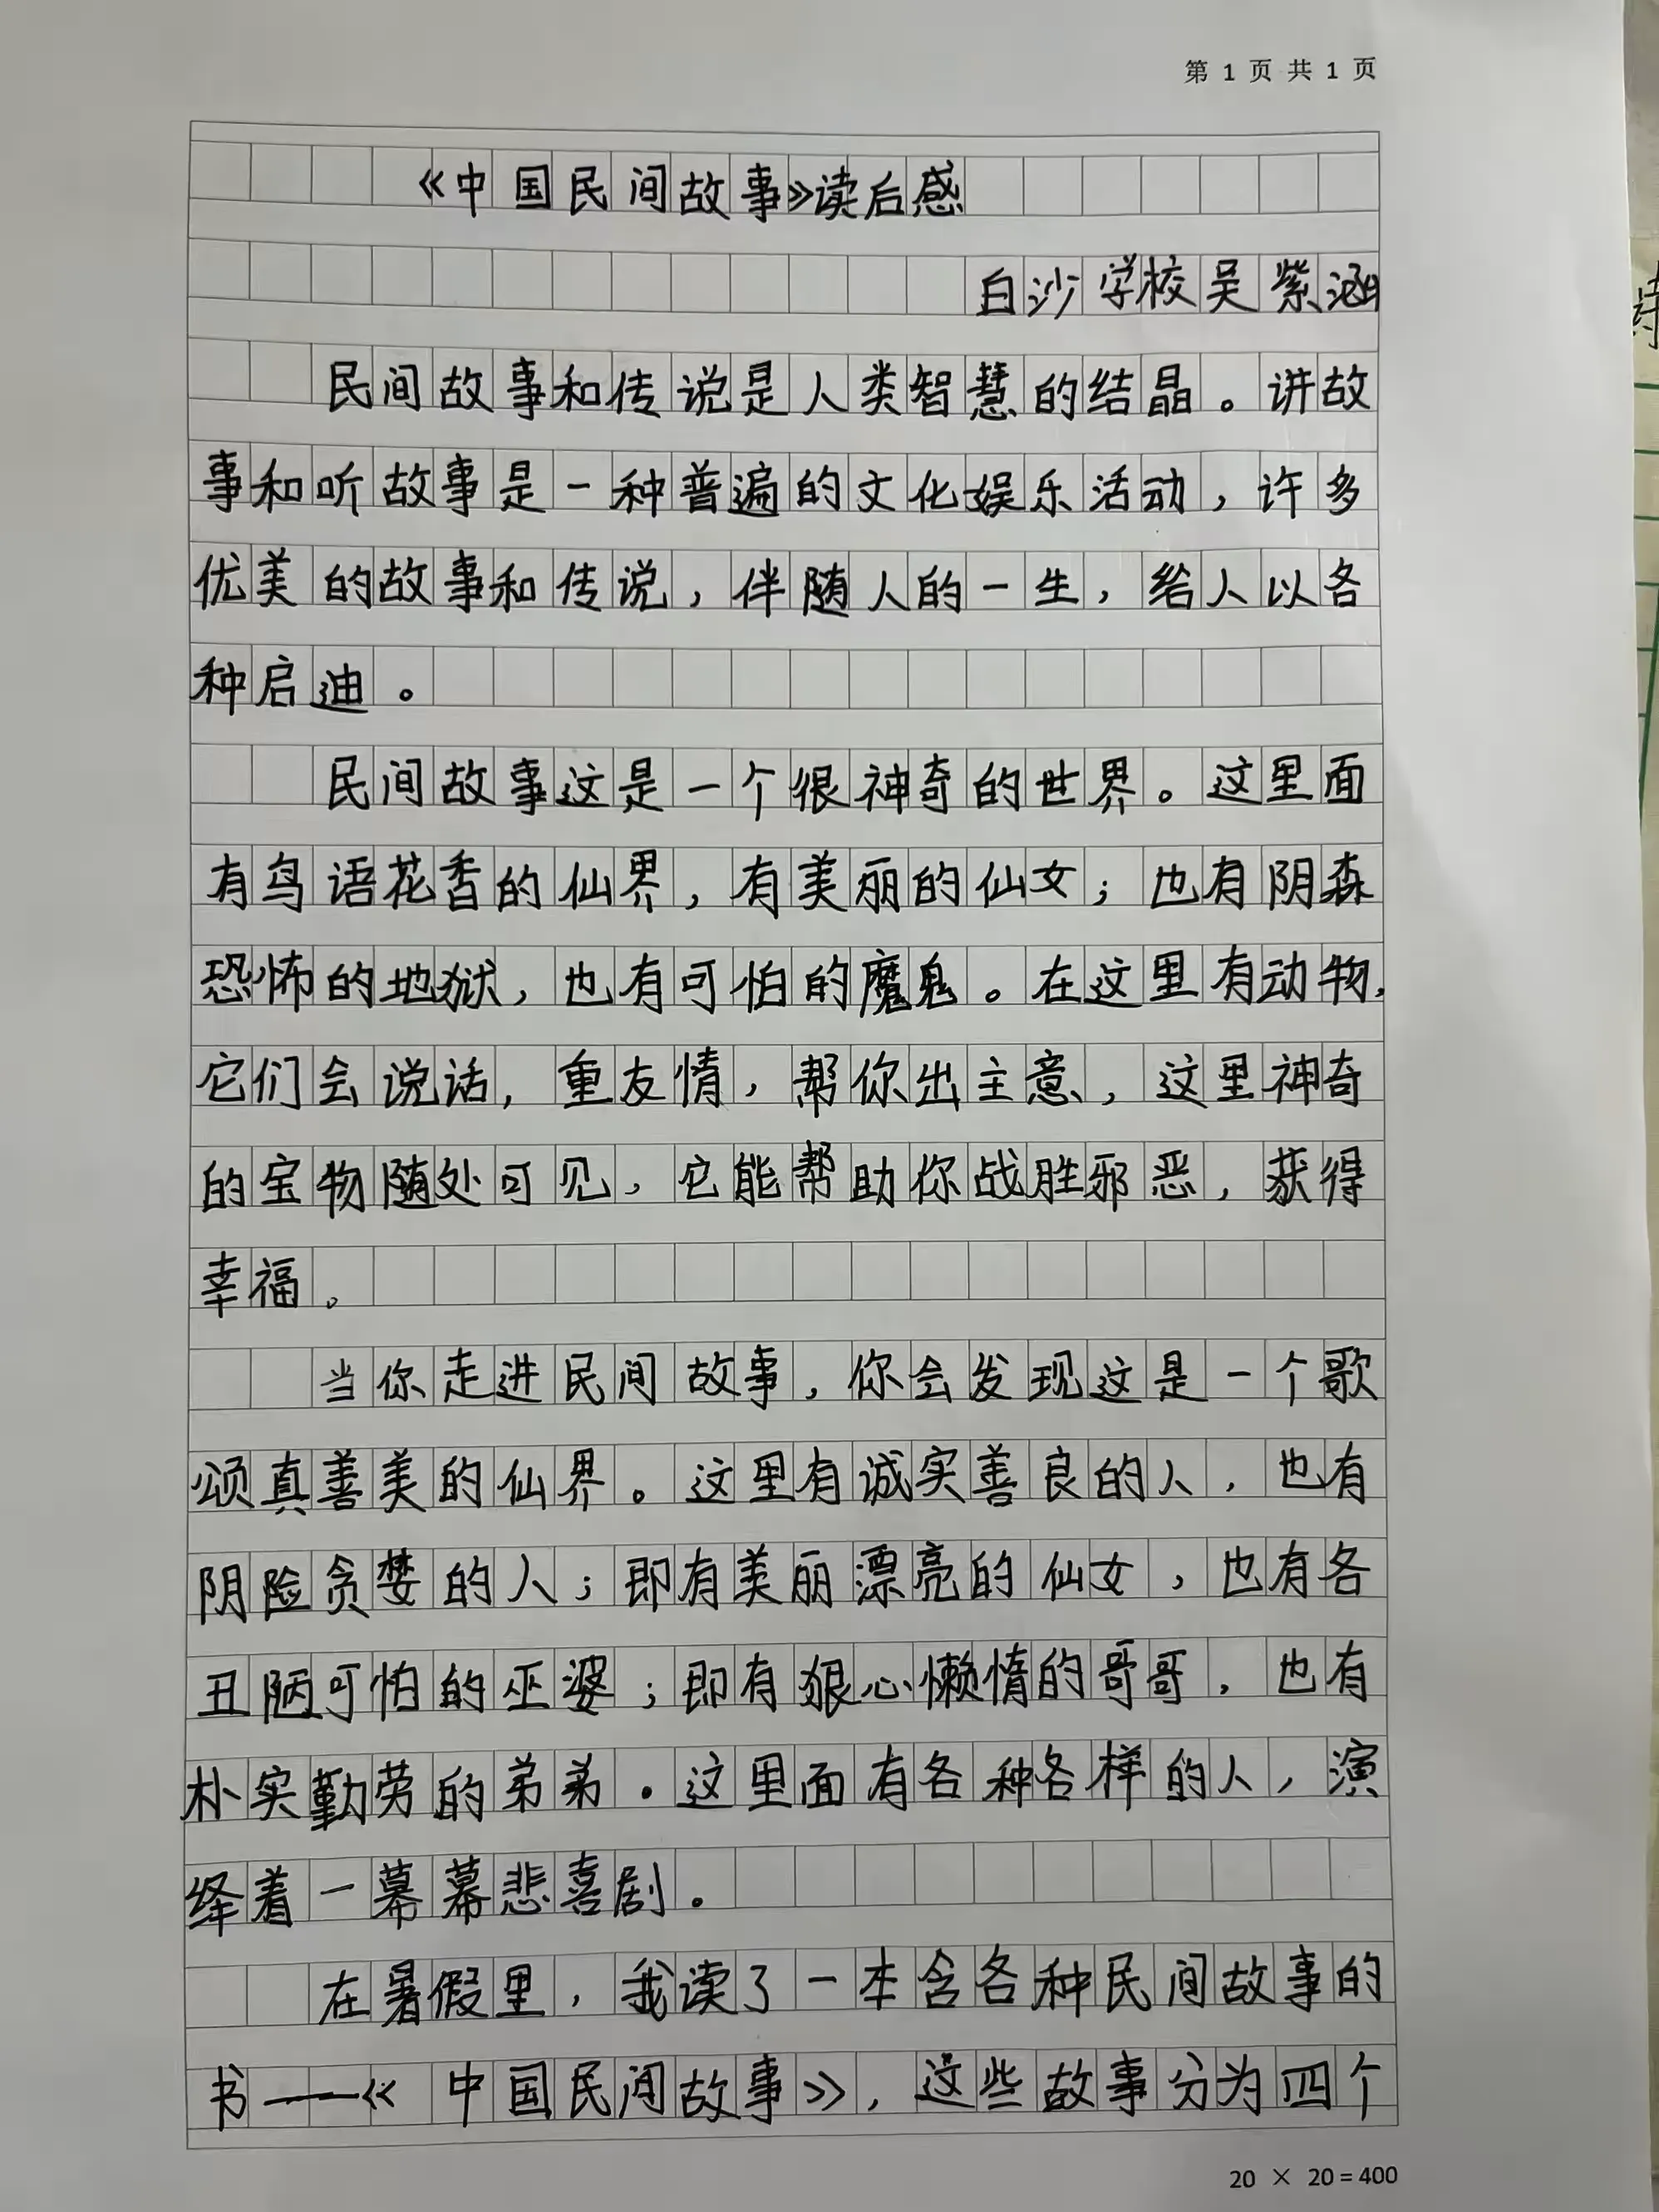 第 1 页 共 1 页
《中国民间故事》读后感
白沙学校吴紫涵
民间故事和传说是人类智慧的结晶。讲故
事和听故事是一种普遍的文化娱乐活动，许多
优美的故事和传说，伴随人的一生，给人以各
种启迪。
民间故事这是一个很神奇的世界。这里面
有鸟语花香的仙界，有美丽的仙女；也有阴森
恐怖的地狱，也有可怕的魔鬼。在这里有动物，
它们会说话，重友情，帮你出主意，这里神奇
的宝物随处可见，它能帮助你战胜邪恶，获得
幸福。
当你走进民间故事，你会发现这是一个歌
颂真善美的仙界。这里有诚实善良的人，也有
阴险贪婪的人；即有美丽漂亮的仙女，也有各
丑陋可怕的巫婆；即有狠心懒惰的哥哥，也有
朴实勤劳的弟弟。这里面有各种各样的人，演
绎着一幕幕悲喜剧。
在暑假里，我读了一本含各种民间故事的
书——《中国民间故事》，这些故事分为四个
20 × 20 = 400